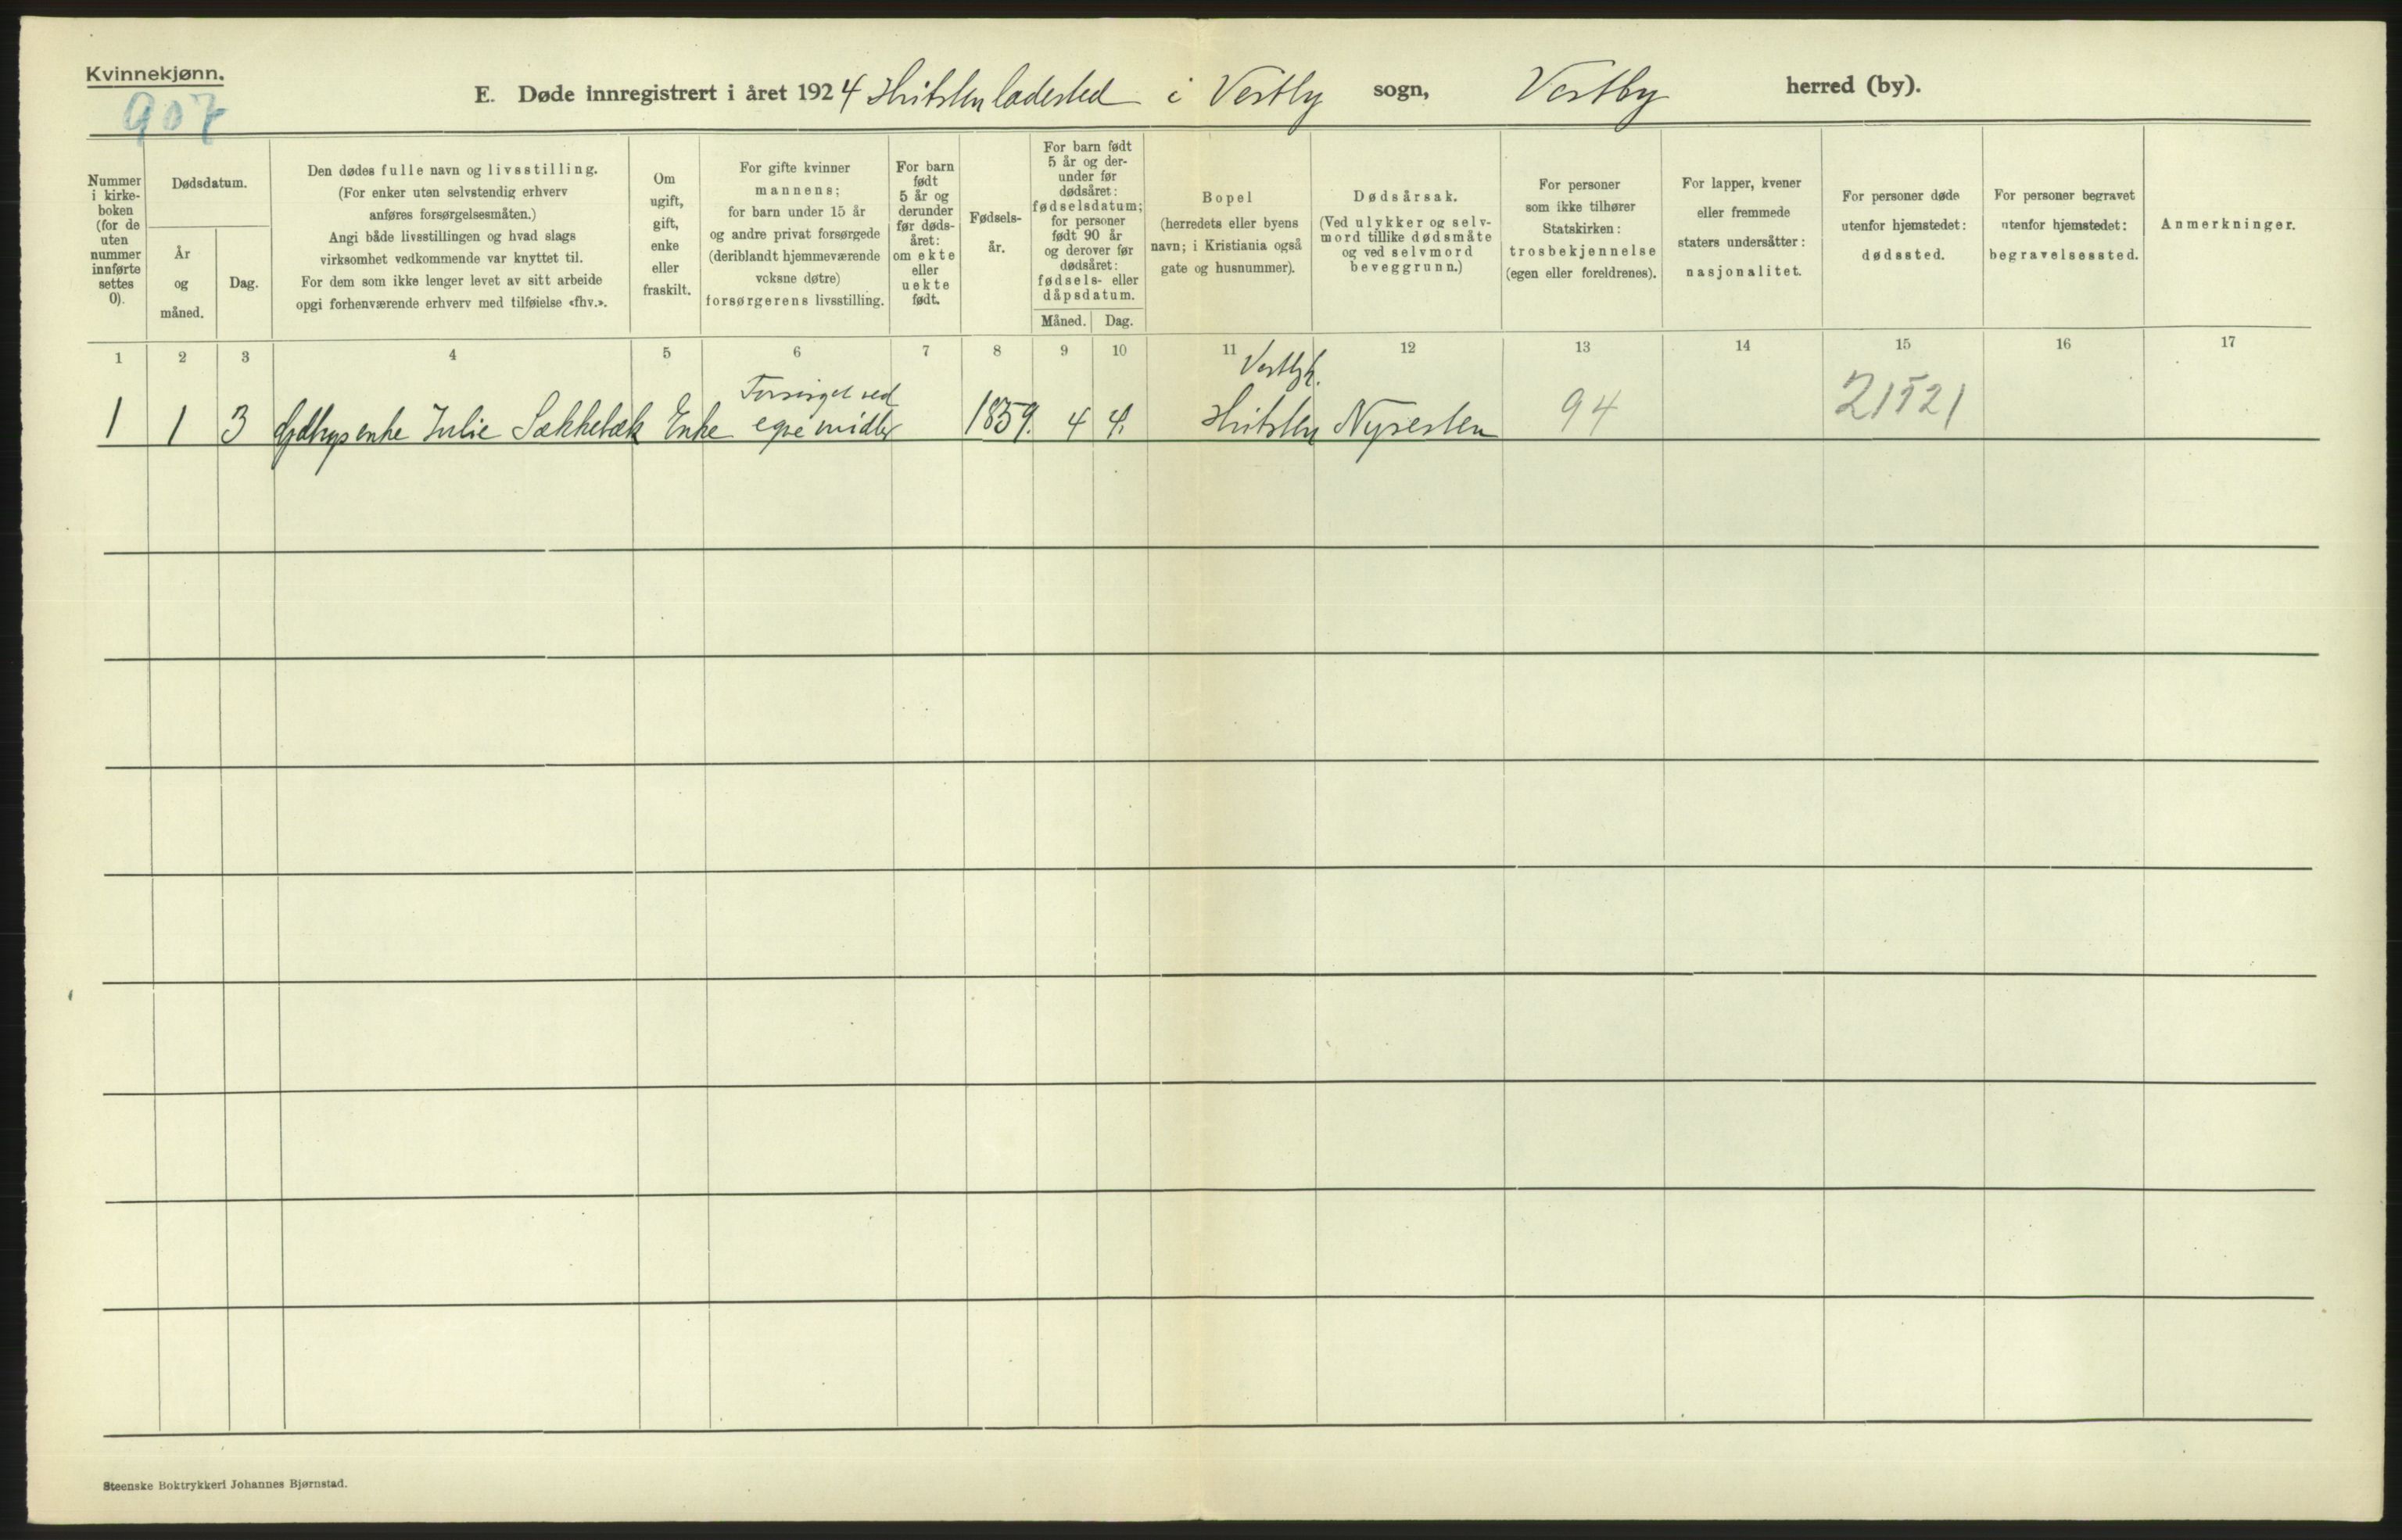 Kvinnekjønn.
907
E. Døde innregistrert i året 1924 Hvitsten ladested i Vestby sogn, Vestby herred (by).
Nummer i kirke-boken (for de uten nummer innførte settes 0).
Dødsdatum.
År og måned.
Dag.
Den dødes fulle navn og livsstilling.
(For enker uten selvstendig erhverv
anføres forsørgelsesmåten.)
Angi både livsstillingen og hvad slags
virksomhet vedkommende var knyttet til.
For dem som ikke lenger levet av sitt arbeide
opgi forhenværende erhverv med tilføielse «fhv.».
Om ugift, gift, enke eller fraskilt.
For gifte kvinner
mannens;
for barn under 15 år
og andre privat forsørgede
(deriblandt hjemmeværende
voksne døtre)
forsørgerens livsstilling.
For barn født 5 år og derunder før døds-året: om ekte eller uekte født.
Fødsels-år.
For barn født 5 år og der-under før dødsåret: fødselsdatum; for personer født 90 år og derover før dødsåret: fødsels- eller dåpsdatum.
Måned. Dag.
Bopel
(herredets eller byens
navn; i Kristiania også
gate og husnummer).
Dødsårsak.
(Ved ulykker og selv-
mord tillike dødsmåte
og ved selvmord
beveggrunn.)
For personer
som ikke tilhører
Statskirken:
trosbekjennelse
(egen eller foreldrenes).
For lapper, kvener
eller fremmede
staters undersåtter:
nasjonalitet.
For personer døde
utenfor hjemstedet:
dødssted.
For personer begravet
utenfor hjemstedet:
begravelsessted.
Anmerkninger.
1 2 3 4 5 6 7 8 9 10 11 12 13 14 15 16 17
Vestby h.
Forsørget ved
1 1 3 enke Julie Sækkebæk Enke egne midler 1859. 4 4. Hvitsten Nyresten 94 21521
Steenske Boktrykkeri Johannes Bjørnstad.